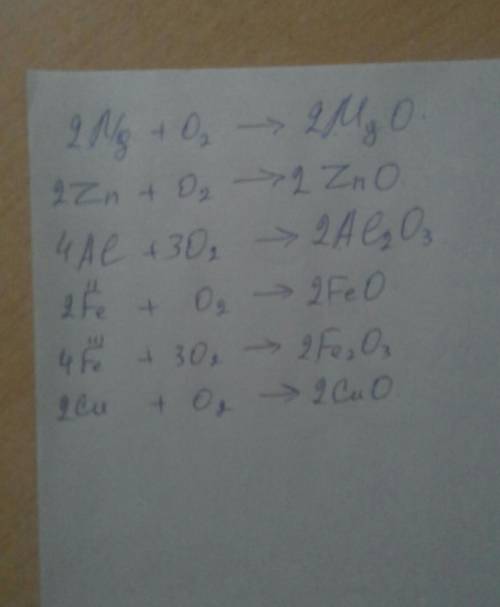 2Mg + O₂ → 2MgO.
2Zn + O₂ → 2ZnO
4Al + 3O₂ → 2Al₂O₃
2Feᴵᴵ + O₂ → 2FeO
4Feᴵᴵᴵ + 3O₂ → 2Fe₂O₃
2Cu + O₂ → 2CuO